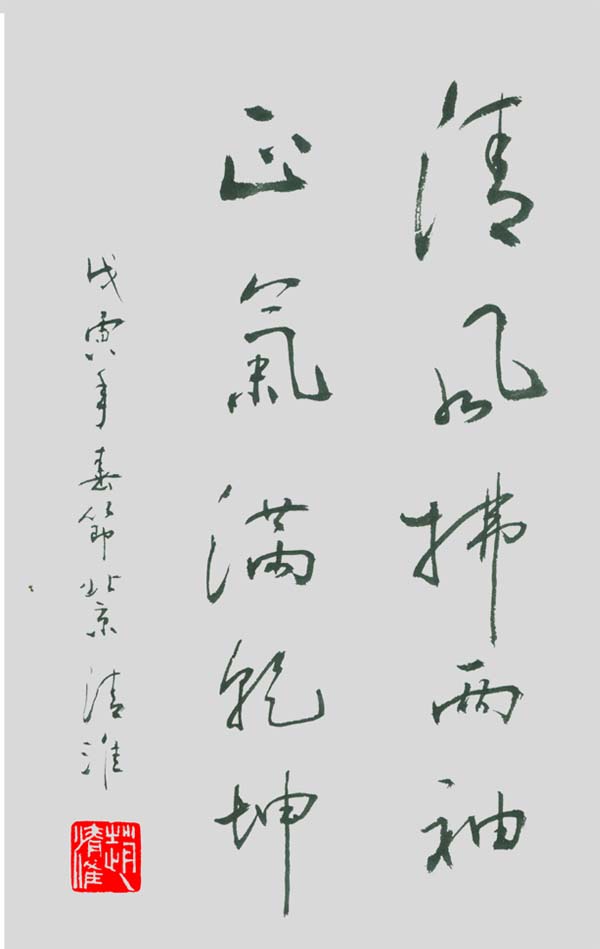 清风拂两袖
正氣满乾坤
戊寅年春節北京清淮
趙清淮